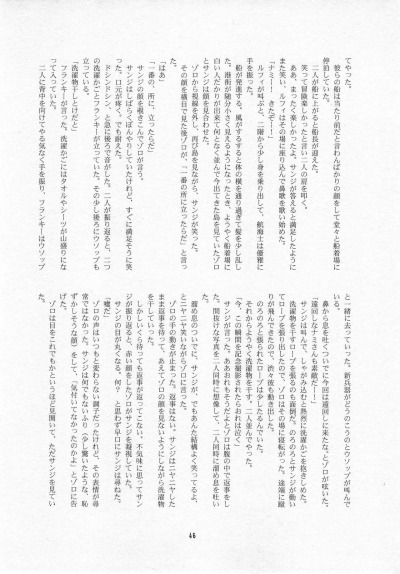 てやった。
彼らの船は当たり前だと言わんばかりの顔をして堂々と船着場に
停泊していた。
二人が船に上がると船長が迎えた。
笑って冒険楽しかったと言い二人の肩を叩く。
ああ、まったく楽しかったよ、サンジが答えると満足したように
また笑い、ルフィはその場に座り込んで鼻歌を歌い始めた。
「ナミー！　きたぞー！」
ルフィが叫ぶと、二階から少し身を乗り出して、航海士は優雅に
手を振った。
船が発する。風がするすると体の横を通り過ぎて髪を少し乱し
た。港街が随分小さく見えるようになったとき、ようやく船着場に
白い人だかりが出来て何となく並んで今出てきた島を見ていたゾロ
とサンジは顔を見合わせた。
ゾロから視線を外し、再び島を見ながら、サンジが笑った。
その顔を横目で見た後ゾロが、「一番の所に立ったらだ」と言っ
た。
「はあ」
「一番の、所に、立ったらだ」
サンジの顔を覗き込んでゾロが言う。
サンジはしばらくぼんやりしていたけれど、すぐに満足そうに笑
った。口元が疼く。でも耐えた。
ドシンドシン、と急に後ろで音がした。二人が振り返ると、二つ
の洗濯かごとフランキーが立っていた。その少し後ろにウソップも
立っている。
「洗濯物干しとけだと」
フランキーが言った。洗濯かごにはタオルやシーツが山盛りにな
って入っていた。
二人に背中を向けてやる気なく手を振り、フランキーはウソップ
と一緒に去っていった。新兵器がどうのこうのとウソップが叫んで
いる。
鼻から息を吐くついでに今回は遠回しに来たな、とゾロが呟いた。
「遠回しなナミさんも素敵だー！」
サンジは叫んで、しゃがみ込むと熱烈に洗濯かごを抱きしめた。
洗濯物を干すロープを張るのも面倒だ。のろのろとサンジが動い
てロープを張り出したので、ゾロはその場に寝転がった。途端に蹴
りが飛んできたので、渋々彼も動き出した。
のろのろと張られたロープは少したるんでいた。
それからようやく洗濯物を干す。二人並んでやった。
今、この瞬間を記念撮影されたらおれは泣く。
サンジが言った。ああおれもそうだよとゾロは腹の中で返事をし
た。間抜けな写真を二人同時に想像して、二人同時に溜め息を吐い
た。
溜め息のついでに、サンジが、でもあんた結構よく笑ってるよ、
とニヤニヤ笑いながらゾロに言った。
ゾロの手の動きが止まった。返事はない。サンジはニヤニヤした
まま返事を待って、あえてゾロの顔を見ないようにしながら洗濯物
を干していった。
しかし、しばらく待っても返事が返ってこない。不気味に思ってサン
ジが振り返ると、赤い顔をしたゾロがサンジを凝視していた。
サンジの目が丸くなる。何？　と思わず早口にサンジは尋ねた。
「嘘だ」
ゾロの声はいつもと変わらない調子だったけれど、その表情が尋
常ではなかった。サンジは何でもないふり（少し驚いたような、恥
ずかしそうな顔）をして、「気付いてなかったのかよ」とゾロに告
げた。
ゾロは目をこれでもかというほど見開いて、ただサンジを見てい
46